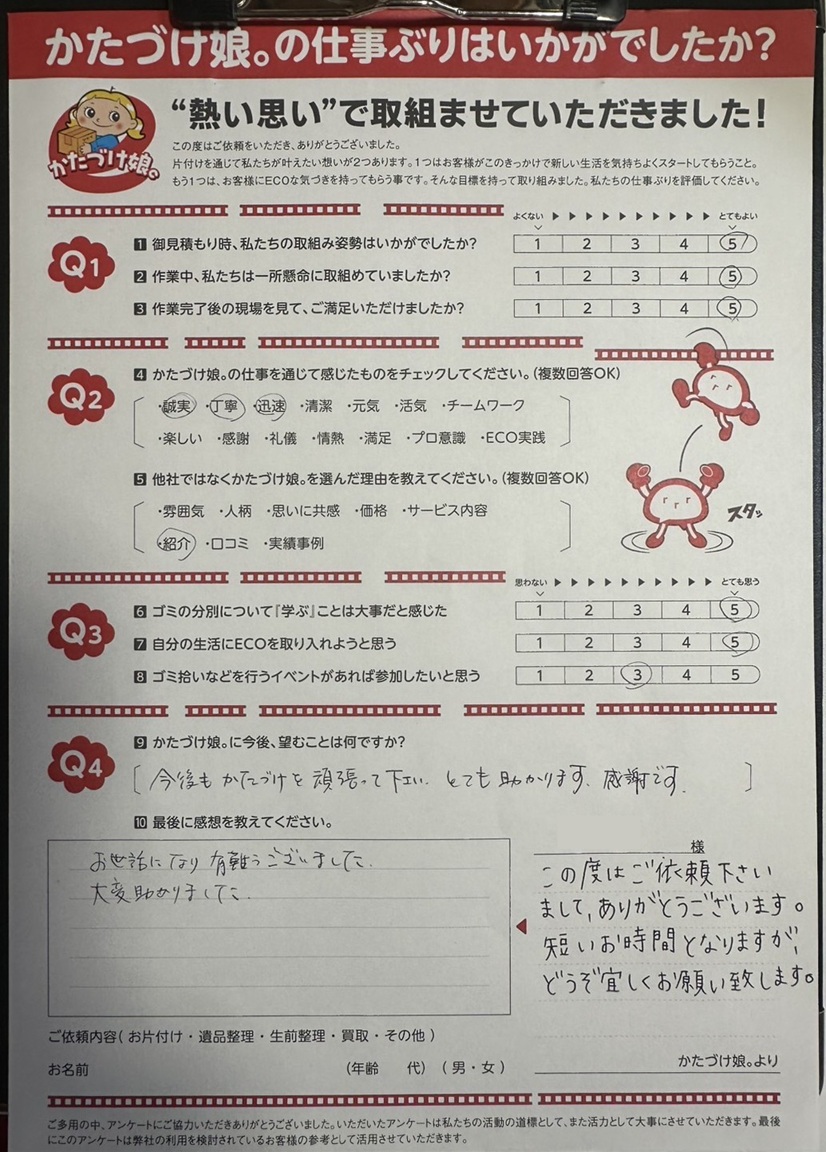 かたづけ娘。の仕事ぶりはいかがでしたか？
かたづけ娘。
“熱い思い”で取組ませていただきました！
この度はご依頼をいただき、ありがとうございました。
片付けを通じて私たちが叶えたい想いが2つあります。1つはお客様がこのきっかけで新しい生活を気持ちよくスタートしてもらうこと。
もう1つは、お客様にECOな気づきを持ってもらう事です。そんな目標を持って取り組みました。私たちの仕事ぶりを評価してください。
よくない ▶ ▶ ▶ ▶ ▶ ▶ ▶ ▶ ▶ ▶ とてもよい
Q1
1 御見積もり時、私たちの取組み姿勢はいかがでしたか？ 1 2 3 4 5
2 作業中、私たちは一所懸命に取組めていましたか？ 1 2 3 4 5
3 作業完了後の現場を見て、ご満足いただけましたか？ 1 2 3 4 5
Q2
4 かたづけ娘。の仕事を通じて感じたものをチェックしてください。（複数回答OK）
・誠実 ・丁寧 ・迅速 ・清潔 ・元気 ・活気 ・チームワーク
・楽しい ・感謝 ・礼儀 ・情熱 ・満足 ・プロ意識 ・ECO実践
5 他社ではなくかたづけ娘。を選んだ理由を教えてください。（複数回答OK）
・雰囲気 ・人柄 ・思いに共感 ・価格 ・サービス内容
・紹介 ・口コミ ・実績事例
スタッ
思わない ▶ ▶ ▶ ▶ ▶ ▶ ▶ ▶ ▶ ▶ とても思う
Q3
6 ゴミの分別について『学ぶ』ことは大事だと感じた 1 2 3 4 5
7 自分の生活にECOを取り入れようと思う 1 2 3 4 5
8 ゴミ拾いなどを行うイベントがあれば参加したいと思う 1 2 3 4 5
Q4
9 かたづけ娘。に今後、望むことは何ですか？
今後も かたづけを 頑張って下さい. とても 助かります. 感謝です.
10 最後に感想を教えてください。
お世話になり 有難うございました.
大変助かりました.
様
この度はご依頼下さい
まして、ありがとうございます。
短いお時間となりますが、
どうぞ宜しくお願い致します。
かたづけ娘。より
ご依頼内容（ お片付け・遺品整理・生前整理・買取・その他 ）
お名前 （年齢 代）（ 男・女 ）
ご多用の中、アンケートにご協力いただきありがとうございました。いただいたアンケートは私たちの活動の道標として、また活力として大事にさせていただきます。最後
にこのアンケートは弊社の利用を検討されているお客様の参考として活用させていただきます。